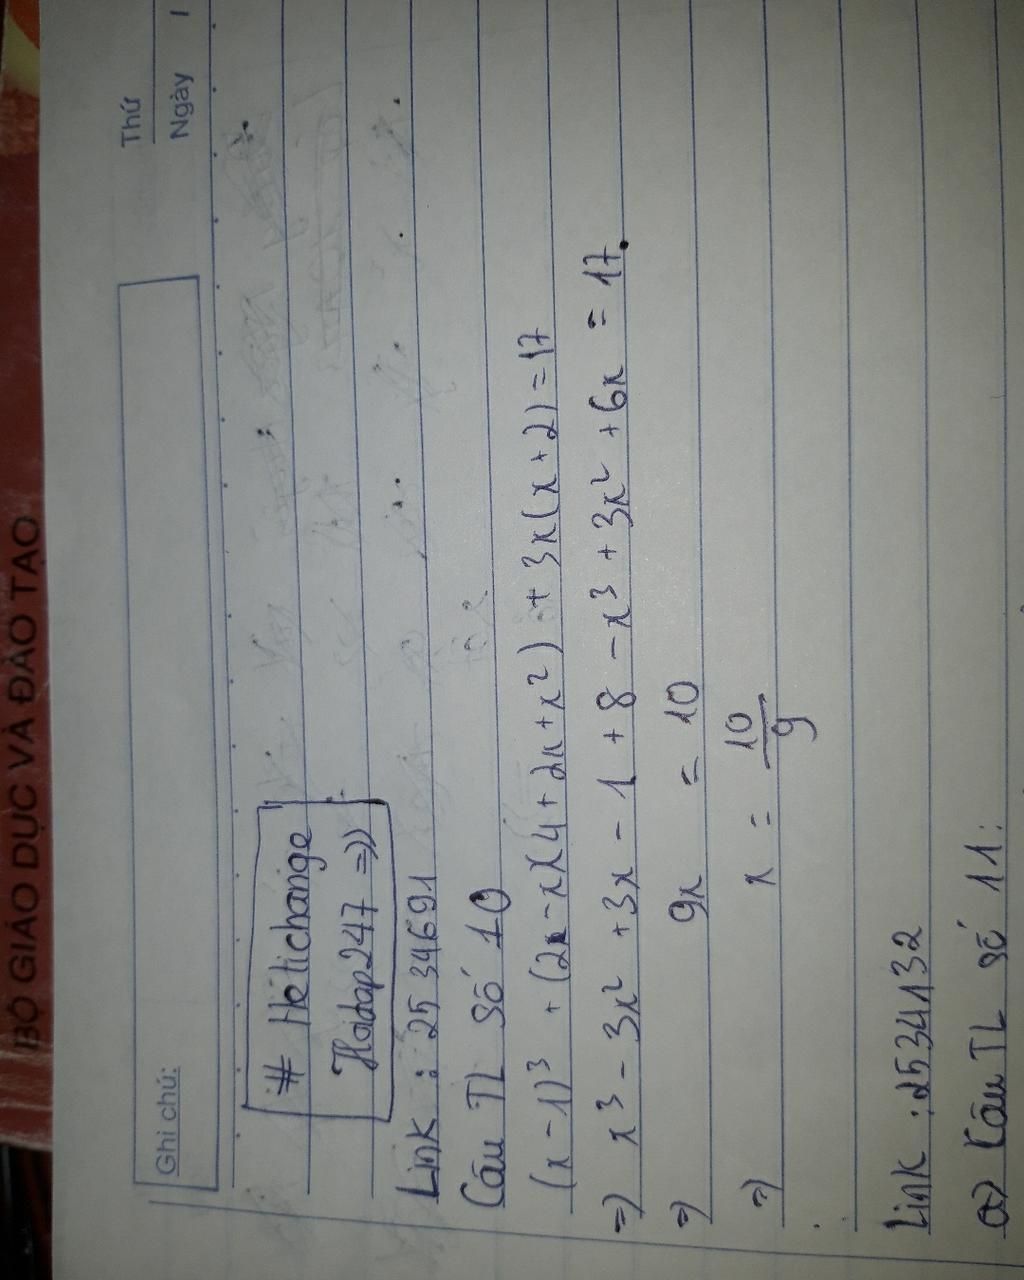 BỘ GIÁO DỤC VÀ ĐÀO TẠO
Thứ
Ngày
Ghi chú:
# Hétichange
Hoidap247 =))
Link : 2534691
Câu TL số 10
(x - 1)³ + (2 - x)(4 + 2x + x²) + 3x(x + 2) = 17
=) x³ - 3x² + 3x - 1 + 8 - x³ + 3x² + 6x = 17.
=) 9x = 10
=) x = 10/9
Link : 2534132
a) Câu TL số 11: